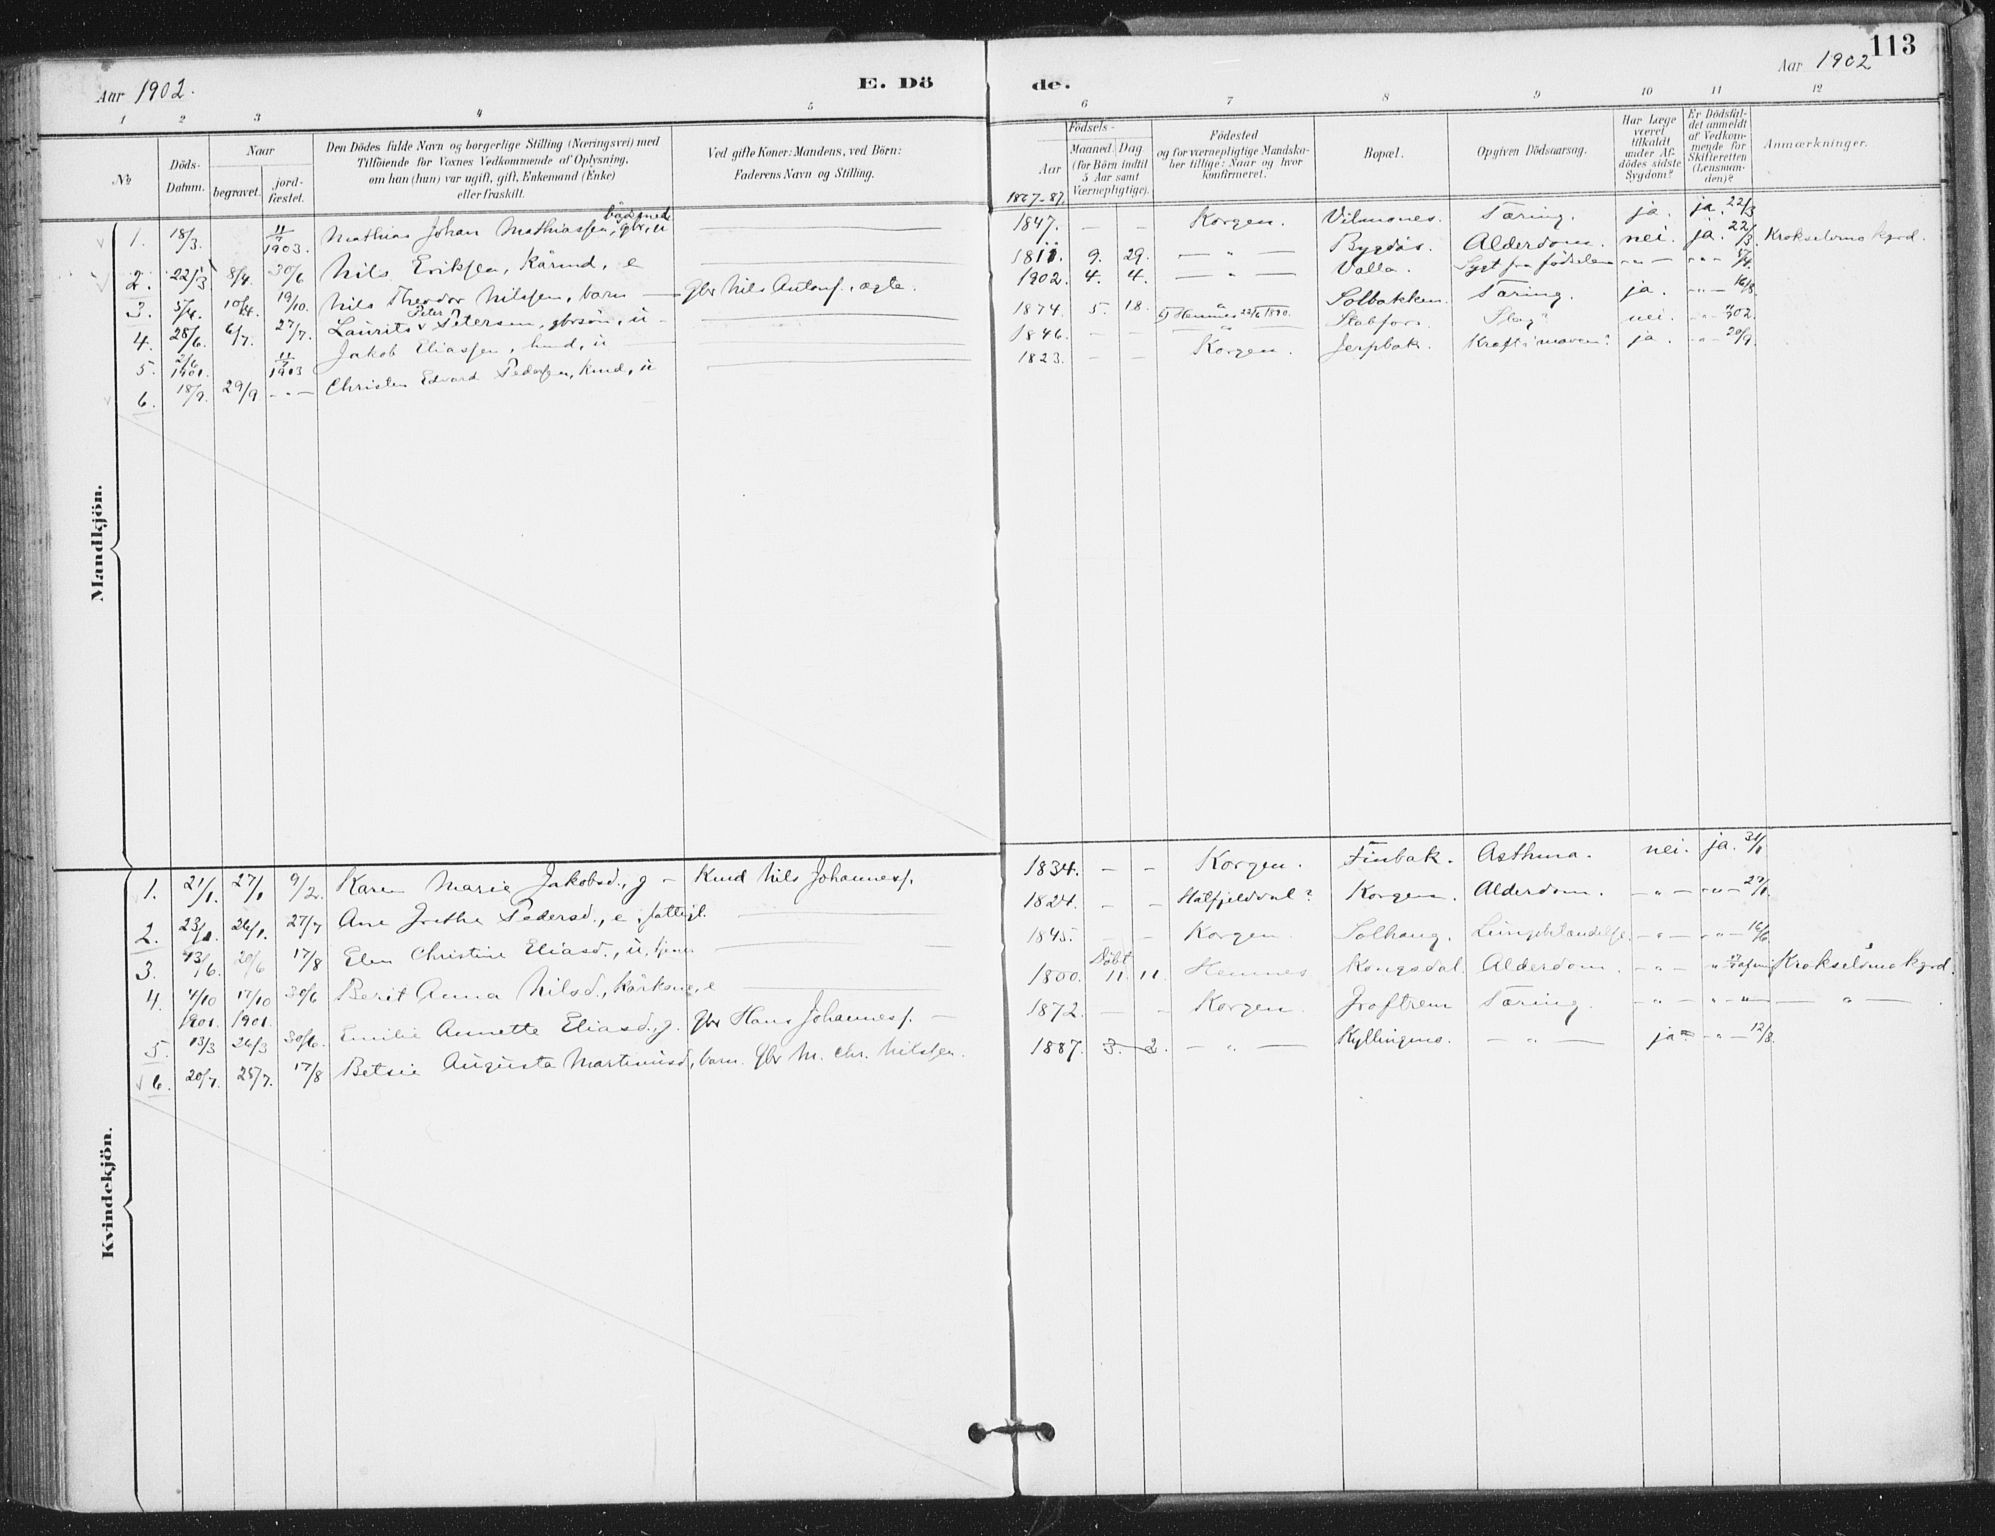 113
Aar 1902.
E. Dö
de.
Aar 1902
1 2 3 4 5
6 7 8 9 10 11 12
№
Döds-
Datum.
Naar
begravet.
jord-
fæstet.
Den Dödes fulde Navn og borgerlige Stilling (Næringsvei) med
Tilföiende for Voxnes Vedkommende af Oplysning,
om han (hun) var ugift, gift, Enkemand (Enke)
eller fraskilt.
Ved gifte Koner: Mandens, ved Börn:
Faderens Navn og Stilling.
Födsels-
Aar
Maaned Dag
(for Börn indtil
5 Aar samt
Værnepligtige).
1867-87.
Födested
og for værnepligtige Mandska-
ber tillige: Naar og hvor
konfirmeret.
Bopæl.
Opgiven Dödsaarsag.
Har Læge
været
tilkaldt
under Af-
dödes sidste
Sygdom?
Er Dödsfal-
det anmeldt
af Vedkom-
mende for
Skifteretten
(Lensman-
den)?
Anmærkninger.
Mandkjön.
1. 18/3. 1903. Mathias Johan Mathiassen, gbr, u 1847. — — Korgen. Vilmones. Tæring. ja. ja. 22/3
2. 22/3 8/4. 30/6 Nils Eriksen, kårmd, e 1811. 9. 29. — " — Bygdås. Alderdom. nei. ja. 22/3. Krokselvmo kgrd.
3. 5/4. 10/4. 19/10. Nils Theodor Nilssen, barn — gbr Nils Antons., ægte. 1902. 4. 4. — " — Valla. Sygt fra födselen — " — — " —
4. 28/6. 6/7. 27/7. Laurits Peter Petersen, gbrsön, u 1874. 5. 18. Hemnes 1890. Solbakken. Tæring. ja. — " — 16/8.
5. 1901. 1903 Jakob Eliassen, u 1846. — — " Stabfors. Slag? nei. — " — 302.
6. 18/9. 29/9 — " — Christen Edvard Pedersen, kmd, u 1823. — — Korgen. Jerpbak. Kræft i maven? ja. — " — 20/9.
Kvindekjön.
1. 21/1. 27/1 9/2. Karen Marie Jakobsd., g — Kmd Nils Johanness. 1834. — — Korgen. Finbak. Asthma. nei. ja. 31/1
2. 23/1. 26/1. 27/7 Ane Grethe Pedersd., e, fattigl. 1824. — — Hatfjelddal? Korgen. Alderdom. — " — — " — 27/1.
3. 13/6. 20/6 17/8 Elen Christine Eliasd., u, 1845. — — Korgen. Solhaug. — " — — " — 16/6.
4. 4/10 1901. 17/10 1901. 30/6 Berit Anna Nilsd., kårkone, e 1800. Döbt 11. 11. Hemnes Kongsdal. Alderdom. — " — Krokselvmo kgrd.
5. 13/3 26/3 30/6. Emilie Annette Eliasd., g. gbr Hans Johanness. — 1872. — — Korgen. Groftrem Tæring. — " — — " — — " —
6. 20/7. 25/7. 17/8 Betsie Augusta Martinusd., barn. Gbr M. Chr. Nilssen. 1887. 3. 2. — " — Kyllingmo. — " — ja — " — 12/8.